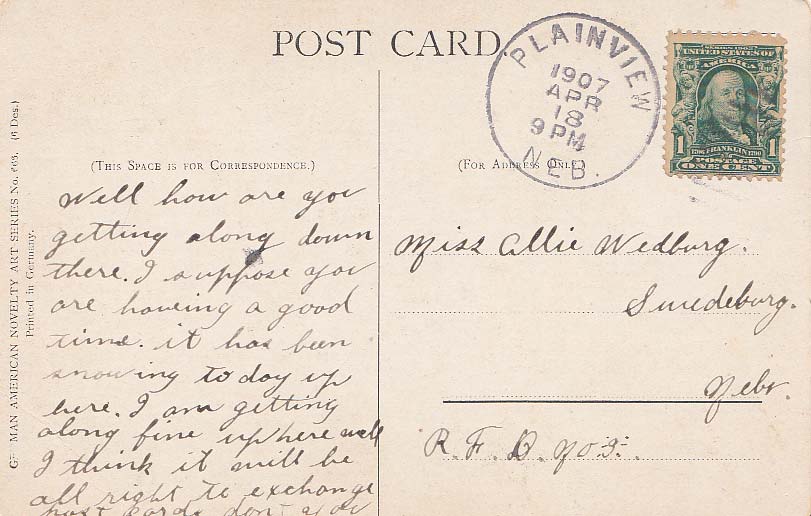 POST CARD.
PLAINVIEW
1907
APR
18
9 PM
NEB.
SERIES 1902
UNITED STATES OF
AMERICA
1706 FRANKLIN 1790
1 POSTAGE 1
ONE CENT
MAN AMERICAN NOVELTY ART SERIES No. (6 Des.)
Printed in Germany.
(THIS SPACE IS FOR CORRESPONDENCE.)
Well how are you
getting along down
there. I suppose you
are haveing a good
time. it has been
snowing to day up
here. I am getting
along fine up here well
I think it will be
all right to exchange
post cards don't you
(FOR ADDRESS ONLY.)
Miss Allie Wedburg.
Swedeburg.
Nebr.
R. F. D. No